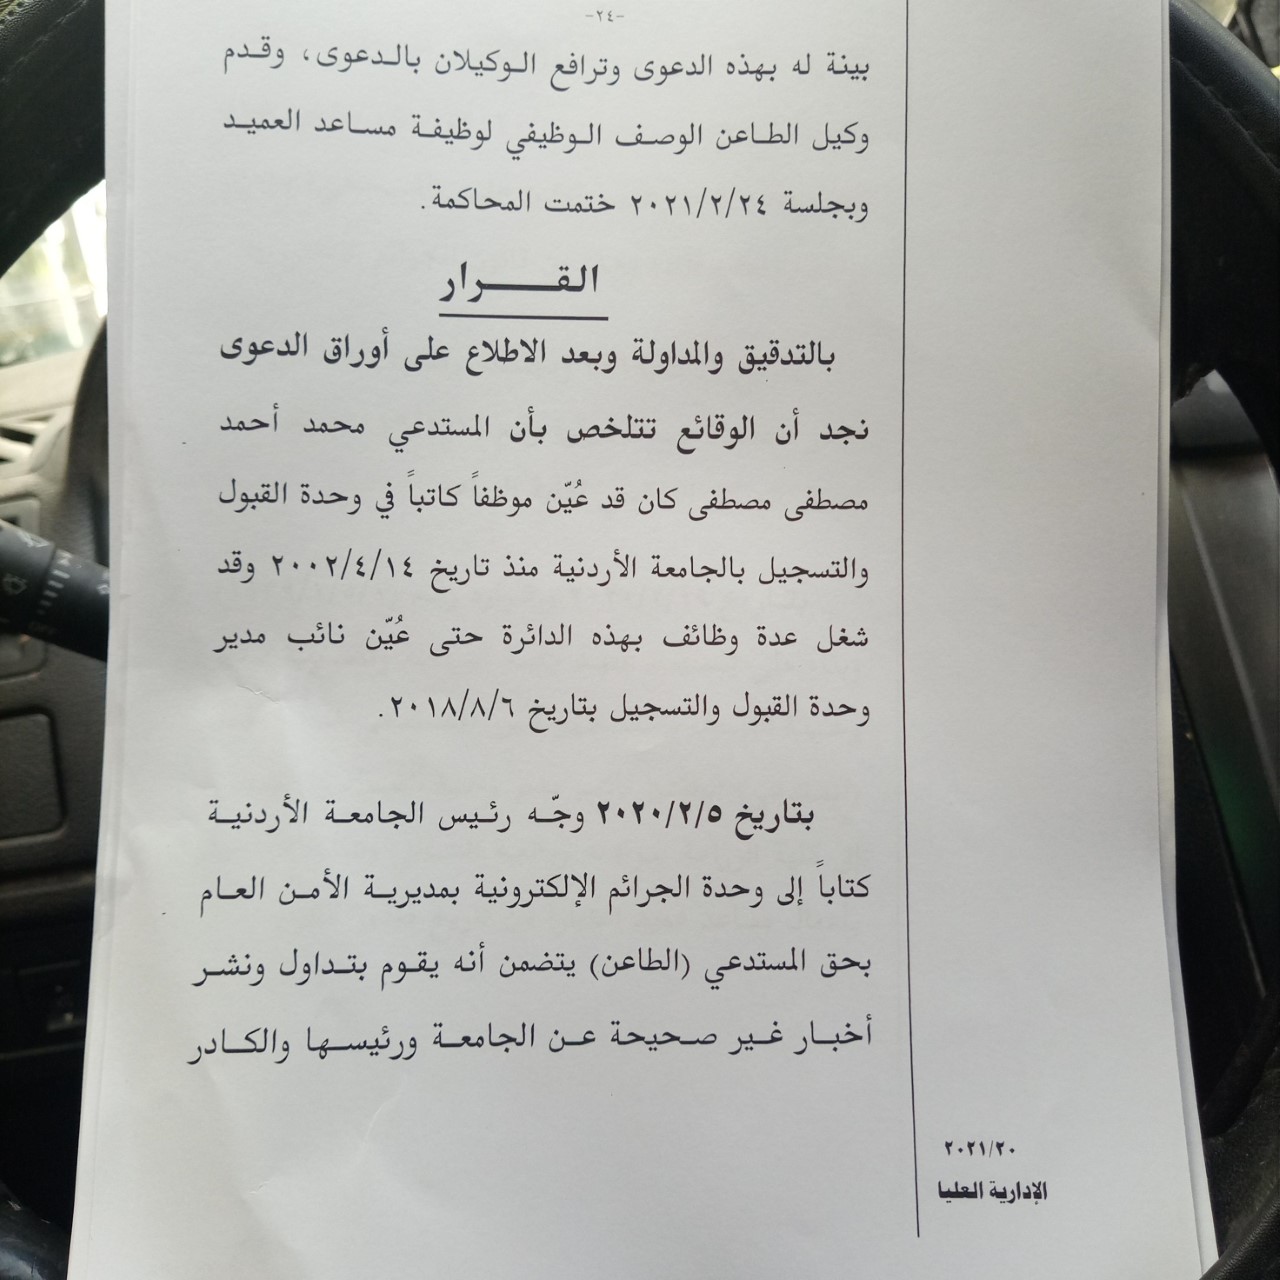 -٢٤-
بينة له بهذه الدعوى وترافع الوكيلان بالدعوى، وقدم
وكيل الطاعن الوصف الوظيفي لوظيفة مساعد العميد
وبجلسة ٢٠٢١/٢/٢٤ ختمت المحاكمة.
القرار
بالتدقيق والمداولة وبعد الاطلاع على أوراق الدعوى
نجد أن الوقائع تتلخص بأن المستدعي محمد أحمد
مصطفى مصطفى كان قد عُيّن موظفاً كاتباً في وحدة القبول
والتسجيل بالجامعة الأردنية منذ تاريخ ٢٠٠٢/٤/١٤ وقد
شغل عدة وظائف بهذه الدائرة حتى عُيّن نائب مدير
وحدة القبول والتسجيل بتاريخ ٢٠١٨/٨/٦.
بتاريخ ٢٠٢٠/٢/٥ وجّه رئيس الجامعة الأردنية
كتاباً إلى وحدة الجرائم الإلكترونية بمديرية الأمن العام
بحق المستدعي (الطاعن) يتضمن أنه يقوم بتداول ونشر
أخبار غير صحيحة عن الجامعة ورئيسها والكادر
٢٠٢١/٢٠
الإدارية العليا